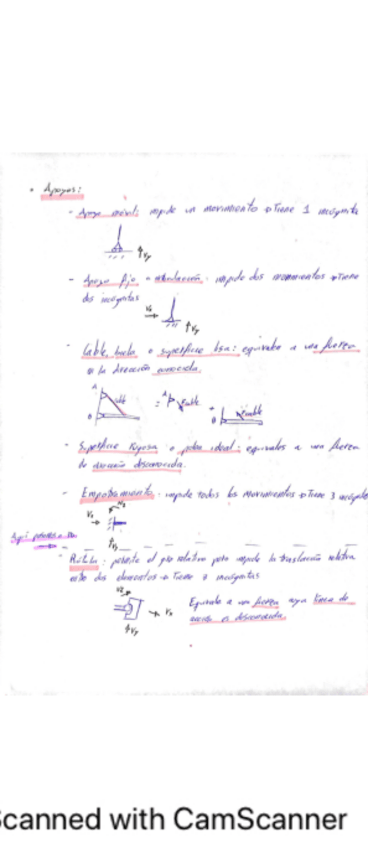 • Apoyos:
- Apoyo móvil: impide un movimiento → Tiene 1 incógnita
Vy
- Apoyo fijo o articulación: impide dos movimientos → Tiene
dos incógnitas
Vx
Vy
- Cable, biela o superficie lisa: equivalen a una fuerza
de la dirección conocida.
A
cable
B
= A
Fcable
+
B
Fcable
- Superficie rugosa o polea ideal: equivalen a una fuerza
de dirección desconocida.
- Empotramiento: impide todos los movimientos → Tiene 3 incógnitas
Vx
Vy
- Rótula: permite el giro relativo pero impide la traslación relativa
entre dos elementos → Tiene incógnitas
Vx
Vy
Equivale a una fuerza cuya línea de
acción es desconocida.
Scanned with CamScanner